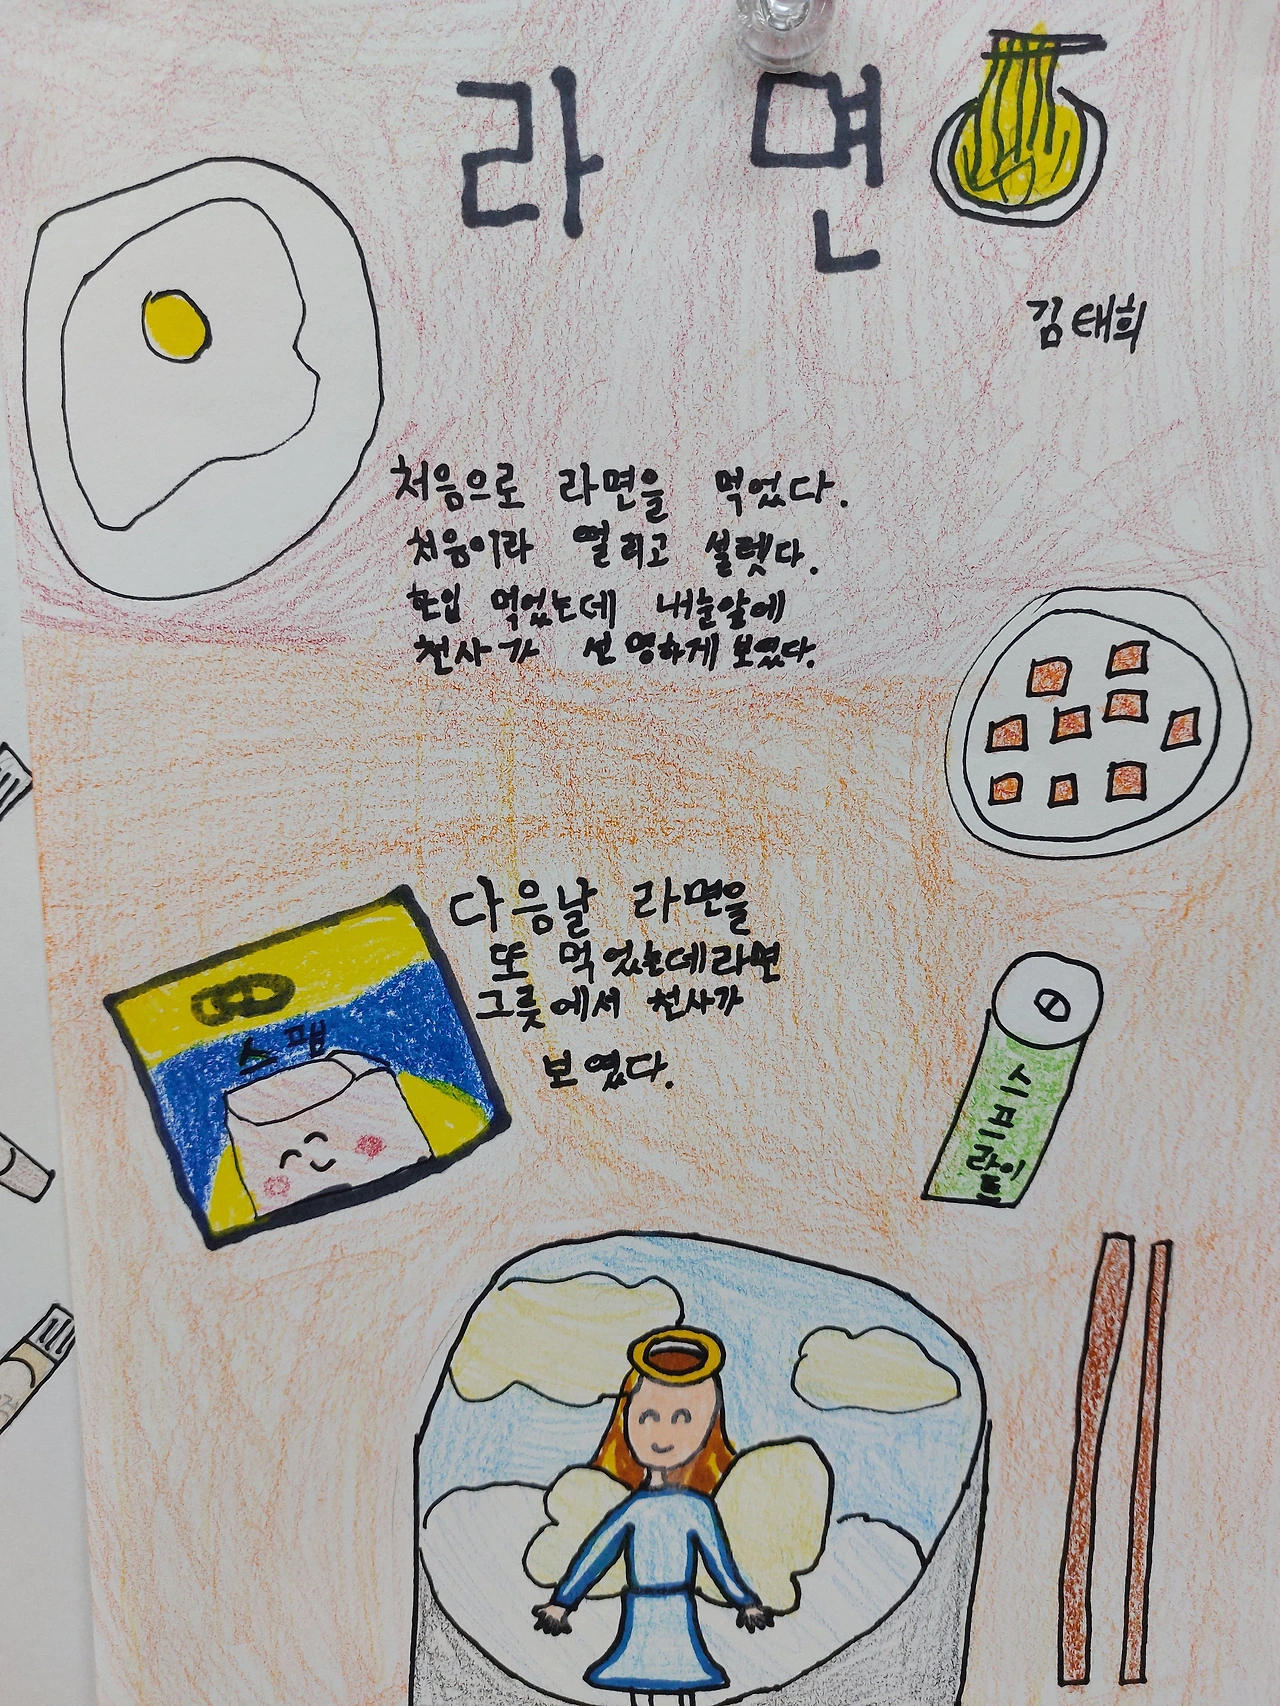 라면
김태희
처음으로 라면을 먹었다.
처음이라 떨리고 설렛다.
한입 먹었는데 내눈앞에
천사가 선명하게 보였다.
다음날 라면을
또 먹었는데라면
그릇에서 천사가
보였다.
스팸
스프라이트